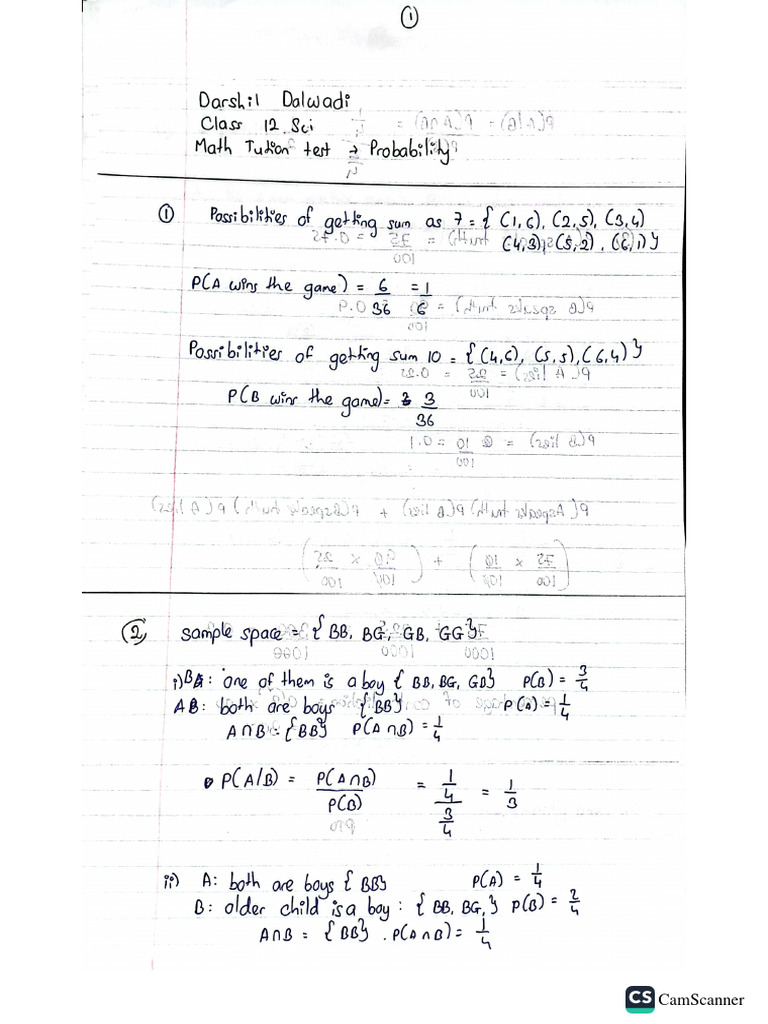 ①
Darshil Dalwadi
Class 12 Sci
Math Tution test → Probability
① Possibilities of getting sum as 7 = { (1,6), (2,5), (3,4)
(4,3), (5,2), (6,1) }
P(A wins the game) = 6/36 = 1/6
Possibilities of getting sum 10 = { (4,6), (5,5), (6,4) }
P(B wins the game) = 3/36
② Sample space = { BB, BG, GB, GG }
i) B: one of them is a boy { BB, BG, GB} P(B) = 3/4
A: both are boys {BB} P(A) = 1/4
A∩B = {BB} P(A∩B) = 1/4
P(A/B) = P(A∩B)/P(B) = 1/4/3/4 = 1/3
ii) A: both are boys { BB} P(A) = 1/4
B: older child is a boy : { BB, BG, } P(B) = 2/4
A∩B = { BB} . P(A∩B) = 1/4
CS CamScanner